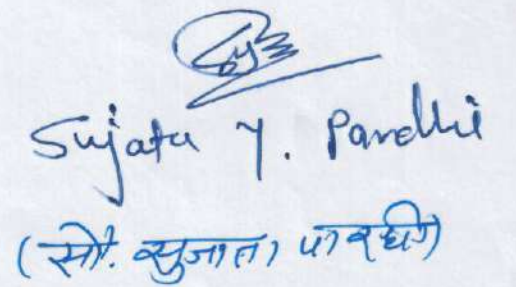 Sujata Y. Pardhi
(सौ. सुजाता पारधी)